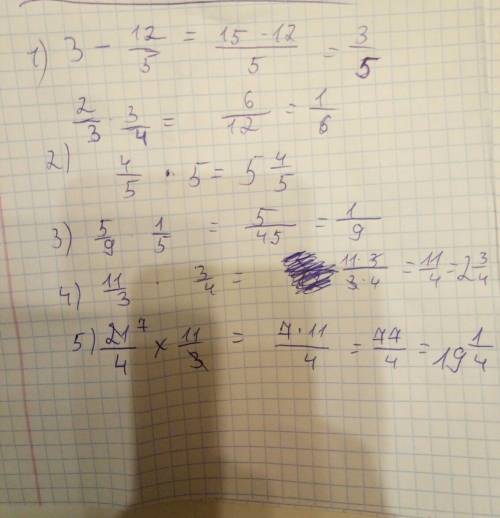 1) 3 - 12/5 = (15 - 12)/5 = 3/5
2/3 · 3/4 = 6/12 = 1/6
2) 4/5 · 5 = 5 4/5
3) 5/9 · 1/5 = 5/45 = 1/9
4) 11/3 · 3/4 = (11·3)/(3·4) = 11/4 = 2 3/4
5) 21/4 ⁷ × 11/3 = (7·11)/4 = 77/4 = 19 1/4